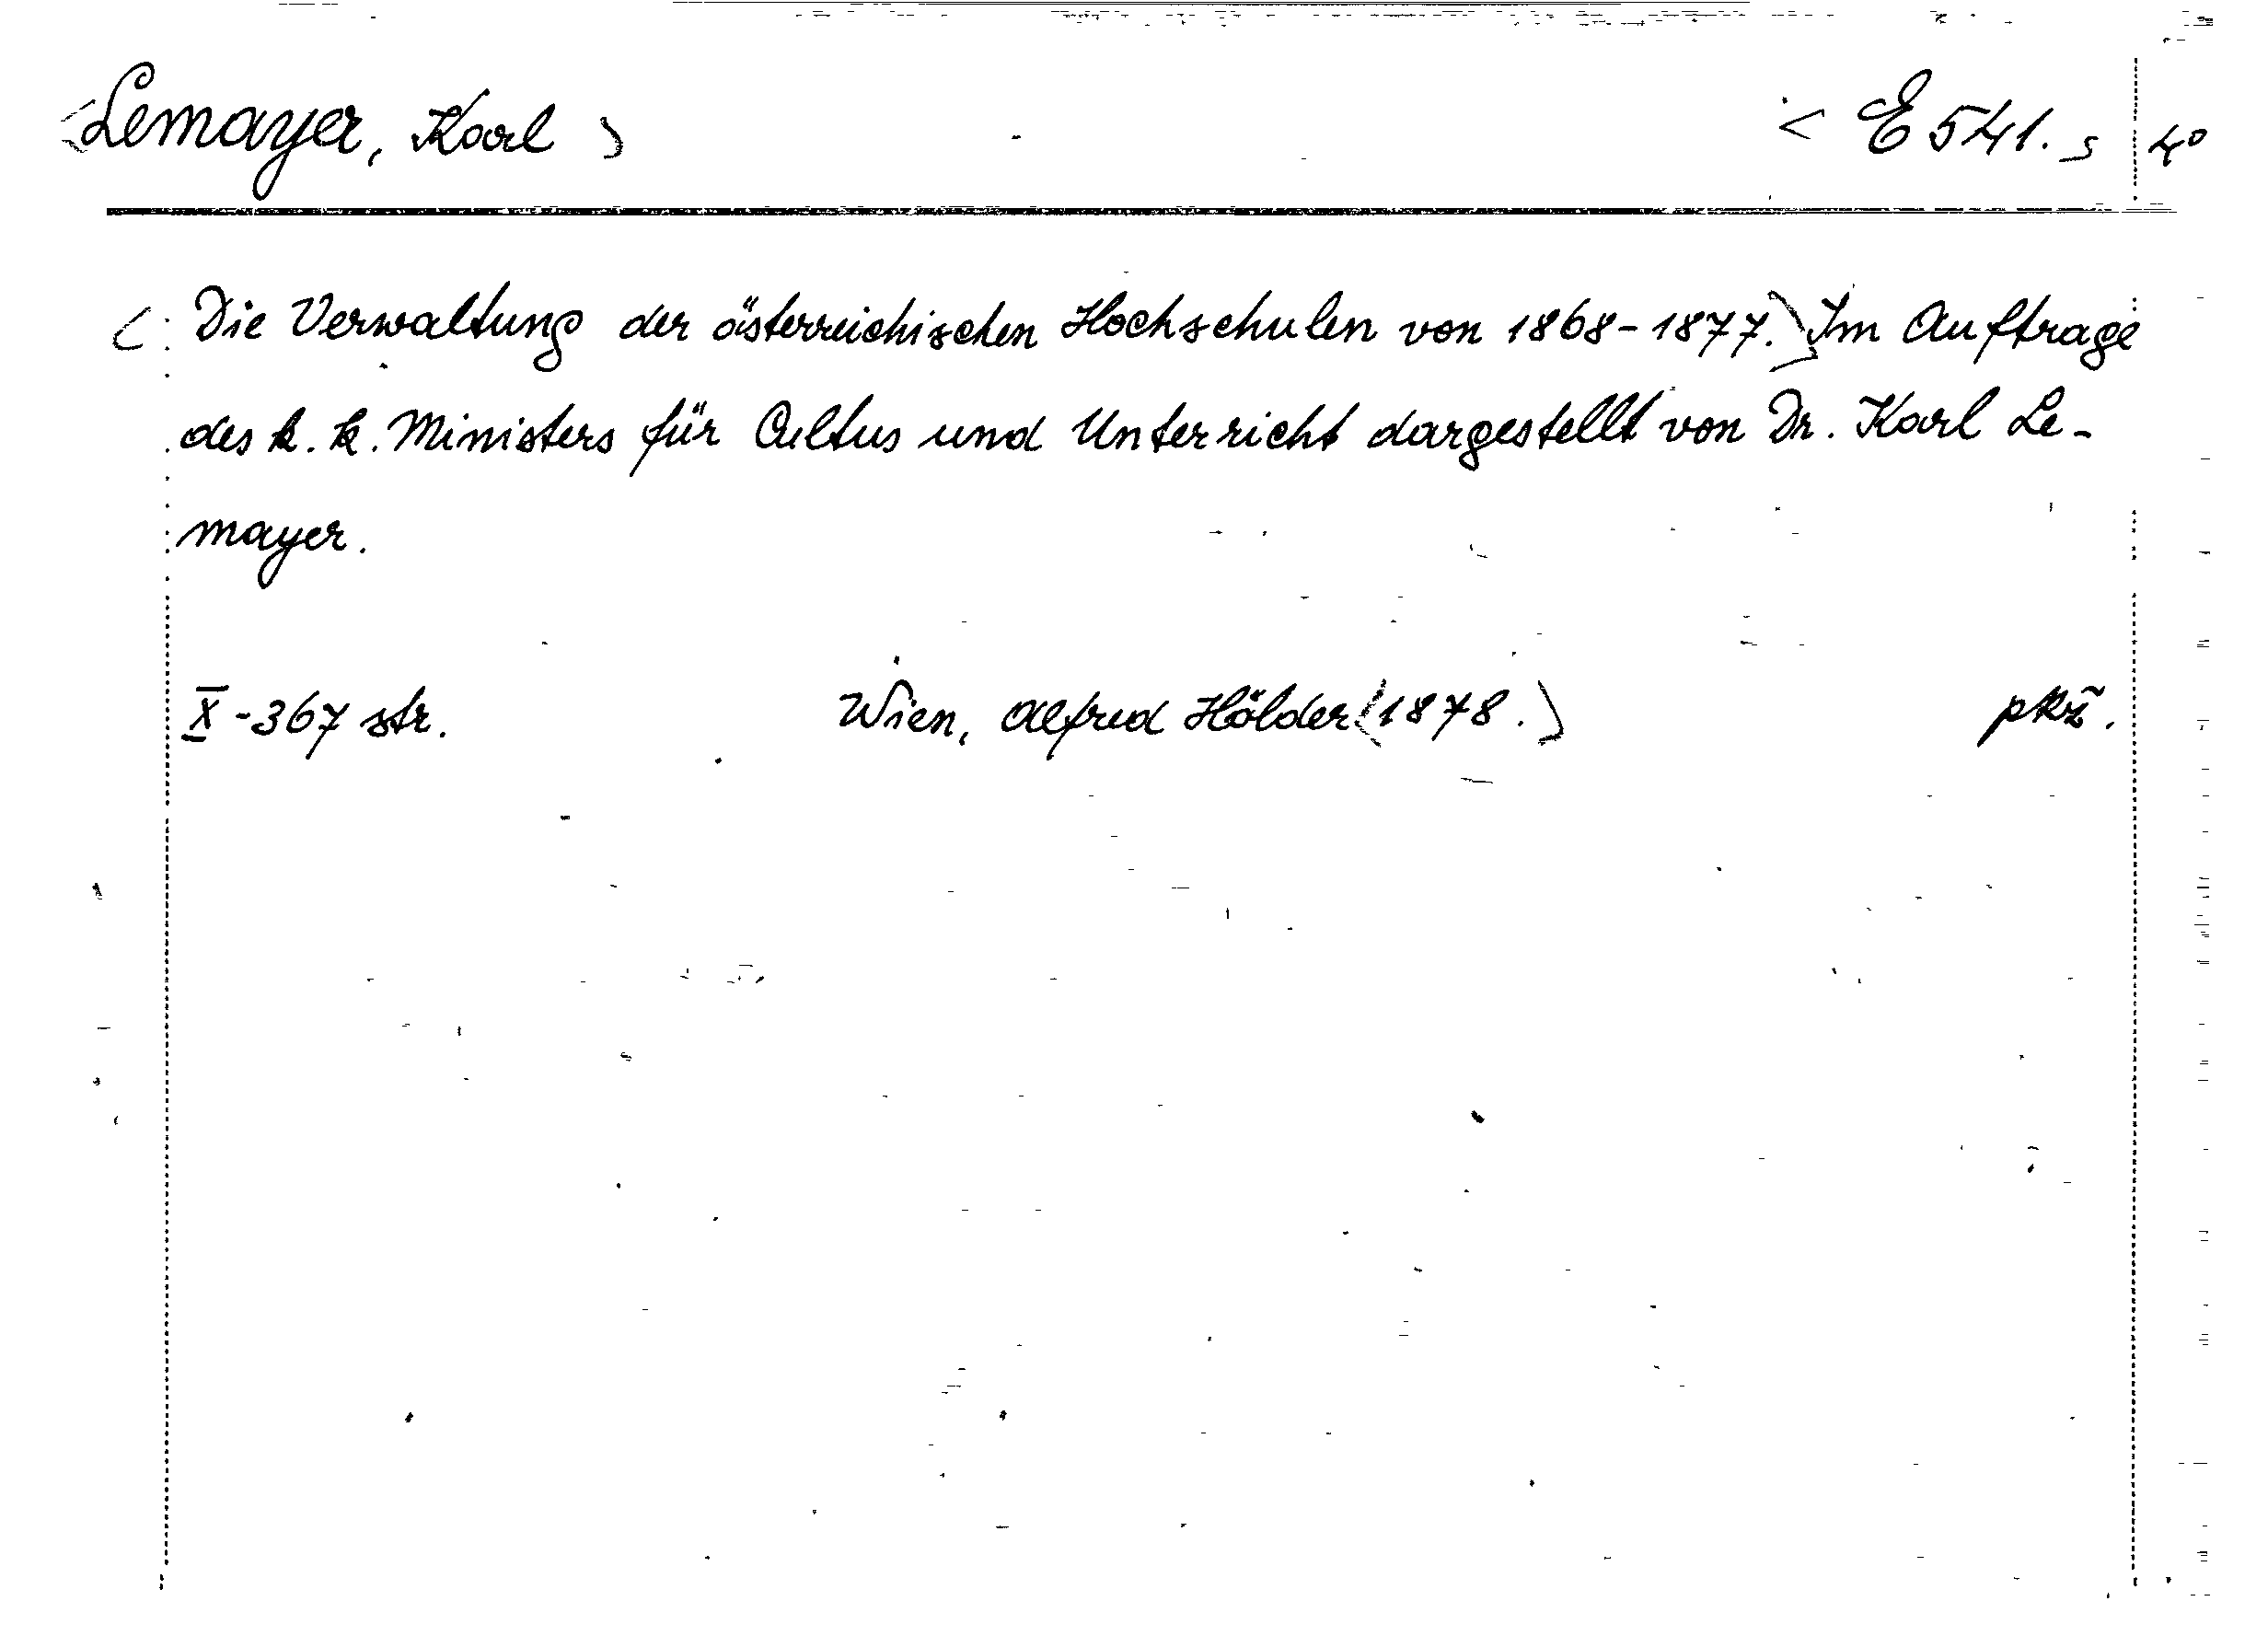 Lemayer, Karl E 541. 4°
Die Verwaltung der österreichischen Hochschulen von 1868-1877. Im Auftrage
des k. k. Ministers für Cultus und Unterricht dargestellt von Dr. Karl Le-
mayer.
X-367 str. Wien, Alfred Hölder 1878. pkž.